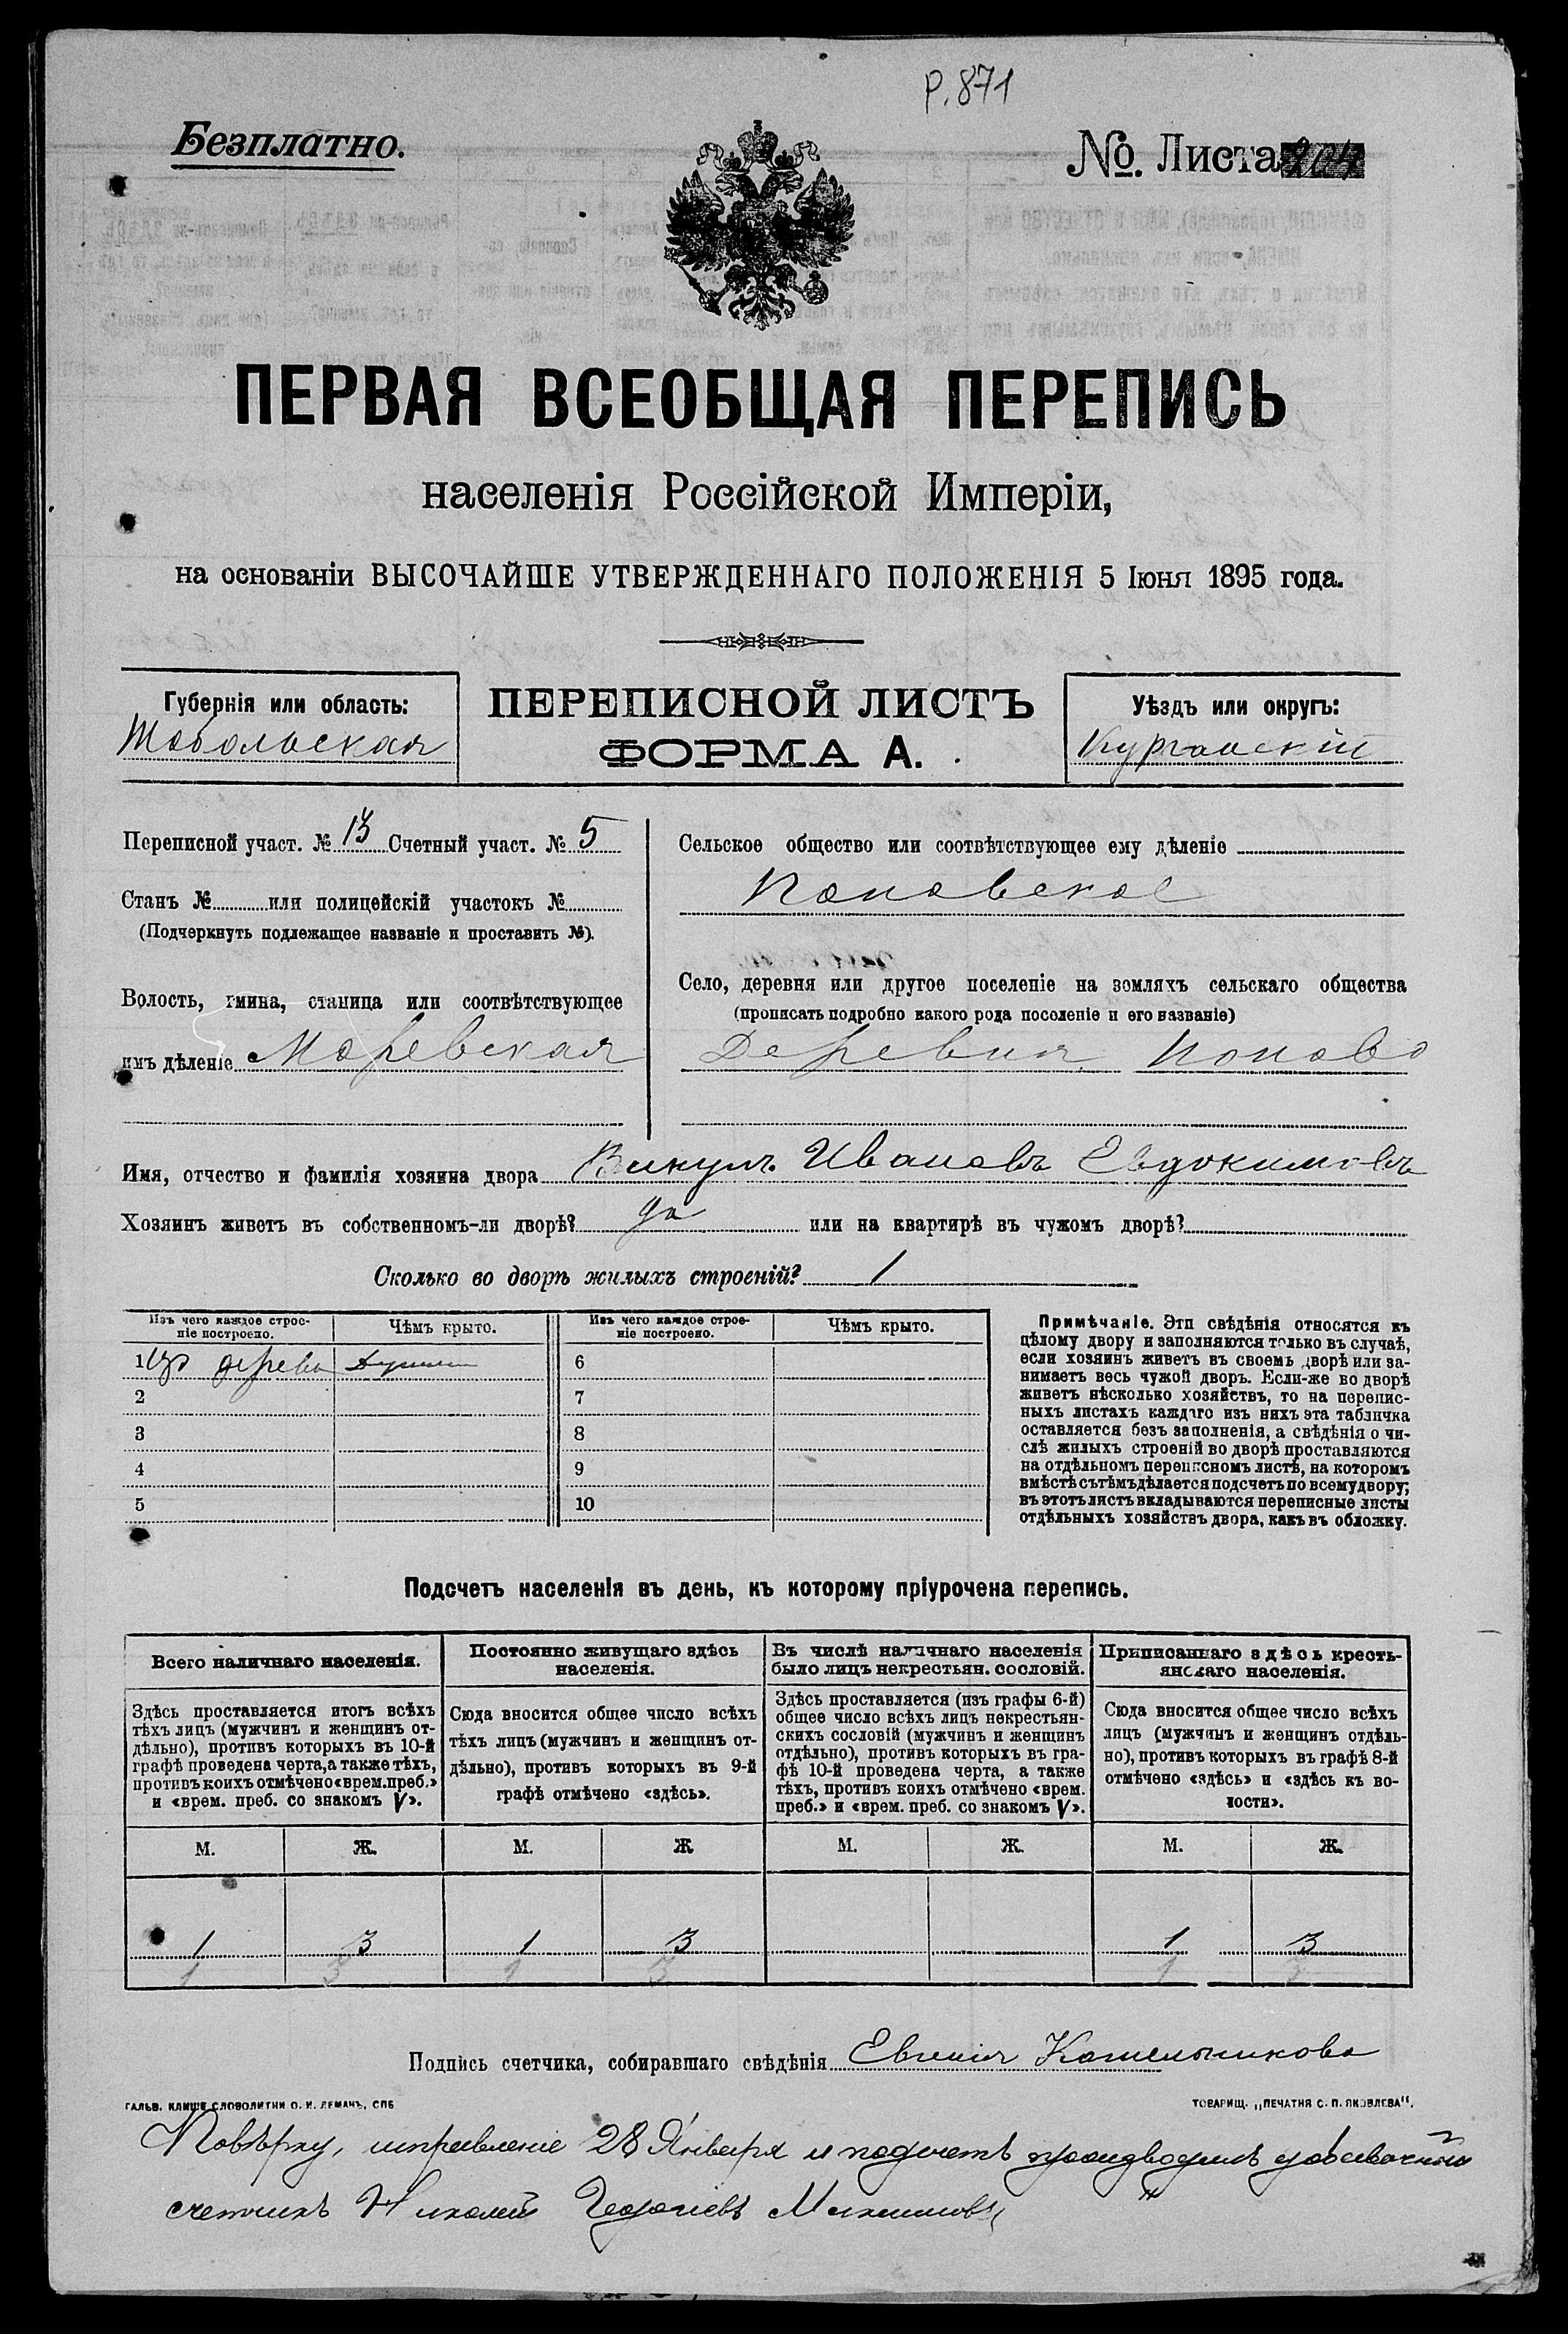 Р. 871
Безплатно.
No. Листа
ПЕРВАЯ ВСЕОБЩАЯ ПЕРЕПИСЬ
населенія Россійской Имперіи,
на основаніи ВЫСОЧАЙШЕ УТВЕРЖДЕННАГО ПОЛОЖЕНІЯ 5 Іюня 1895 года.
Губернія или область:
Тобольская
ПЕРЕПИСНОЙ ЛИСТЪ
ФОРМА А.
Уѣздъ или округъ:
Курганскій
Переписной участ. № 13 Счетный участ. № 5
Станъ № или полицейскій участокъ №
(Подчеркнуть подлежащее названіе и проставить №).
Волость, гмина, станица или соотвѣтствующее
имъ дѣленіе Моревская
Сельское общество или соотвѣтствующее ему дѣленіе
Поповское
Село, деревня или другое поселеніе на земляхъ сельскаго общества
(прописать подробно какого рода поселеніе и его названіе)
Деревня Попово
Имя, отчество и фамилія хозяина двора Викулъ Ивановъ Евдокимовъ
Хозяинъ живетъ въ собственномъ-ли дворѣ? да или на квартирѣ въ чужомъ дворѣ?
Сколько во дворѣ жилыхъ строеній? 1
Изъ чего каждое строе-
ніе построено.
Чѣмъ крыто.
Изъ чего каждое строе-
ніе построено.
Чѣмъ крыто.
1 Изъ дерева
6
2
7
3
8
4
9
5
10
Примѣчаніе. Эти свѣдѣнія относятся къ
цѣлому двору и заполняются только въ случаѣ,
если хозяинъ живетъ въ своемъ дворѣ или за-
нимаетъ весь чужой дворъ. Если-же во дворѣ
живетъ нѣсколько хозяйствъ, то на перепис-
ныхъ листахъ каждаго изъ нихъ эта табличка
оставляется безъ заполненія, а свѣдѣнія о чи-
слѣ жилыхъ строеній во дворѣ проставляются
на отдѣльномъ переписномъ листѣ, на которомъ
вмѣстѣ съ тѣмъ дѣлается подсчетъ по всему двору;
въ этотъ листъ вкладываются переписные листы
отдѣльныхъ хозяйствъ двора, какъ въ обложку.
Подсчетъ населенія въ день, къ которому пріурочена перепись.
Всего наличнаго населенія.
Здѣсь проставляется итогъ всѣхъ
тѣхъ лицъ (мужчинъ и женщинъ от-
дѣльно), противъ которыхъ въ 10-й
графѣ проведена черта, а также тѣхъ,
противъ коихъ отмѣчено «врем. преб.»
и «врем. преб. со знакомъ V».
Постоянно живущаго здѣсь
населенія.
Сюда вносится общее число всѣхъ
тѣхъ лицъ (мужчинъ и женщинъ от-
дѣльно), противъ которыхъ въ 9-й
графѣ отмѣчено «здѣсь».
Въ числѣ наличнаго населенія
было лицъ некрестьян. сословій.
Здѣсь проставляется (изъ графы 6-й)
общее число всѣхъ лицъ некрестьян-
скихъ сословій (мужчинъ и женщинъ
отдѣльно), противъ которыхъ въ гра-
фѣ 10-й проведена черта, а также
тѣхъ, противъ коихъ отмѣчено «врем.
преб.» и «врем. преб. со знакомъ V».
Приписаннаго здѣсь кресть-
янскаго населенія.
Сюда вносится общее число всѣхъ
лицъ (мужчинъ и женщинъ отдѣль-
но), противъ которыхъ въ графѣ 8-й
отмѣчено «здѣсь» и «здѣсь къ во-
лости».
М. Ж. М. Ж М. Ж. М. Ж.
1 3 1 3 1 3
1 3 1 3 1 3
Подпись счетчика, собиравшаго свѣдѣнія Евгенія Котельникова
ГАЛЬВ. КЛИШЕ СЛОВОЛИТНИ О. И. ЛЕМАНЪ, СПБ
ТОВАРИЩ. „ПЕЧАТНЯ С. П. ЯКОВЛЕВА".
Повѣрку, исправленіе 28 Января и подсчетъ производилъ добавочный
счетчикъ Николай Георгіевъ